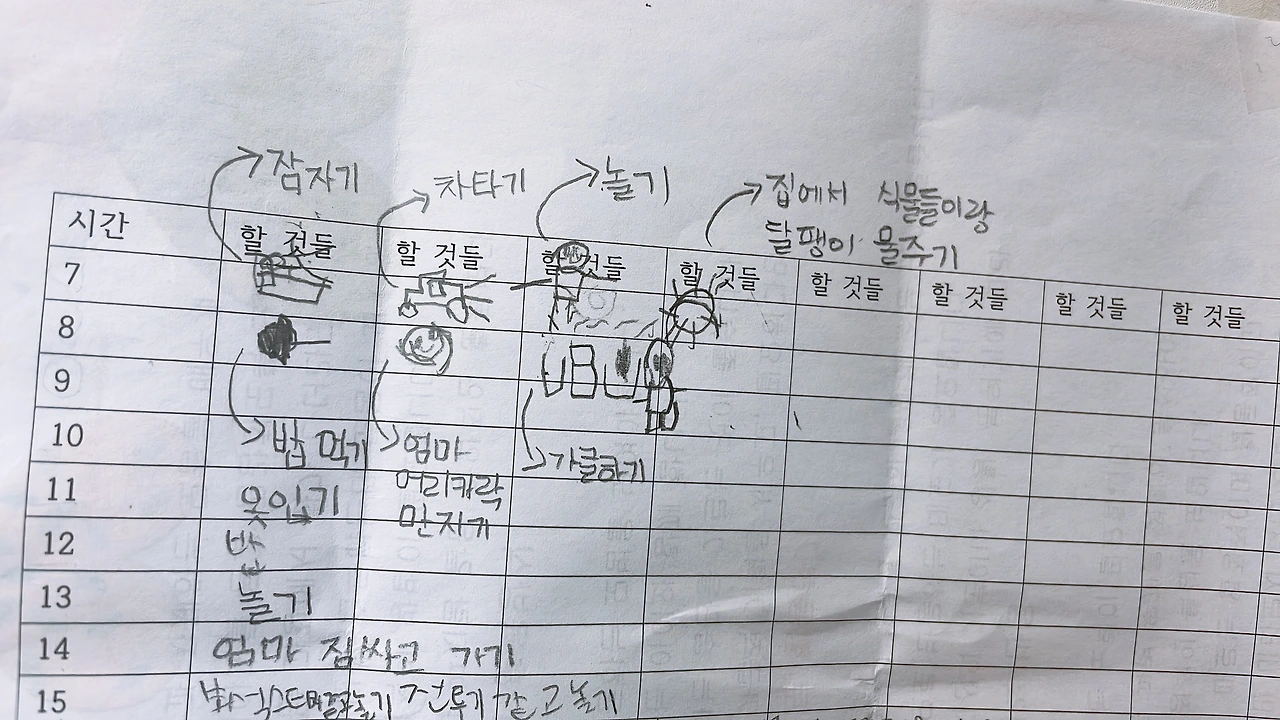 잠자기 차타기 놀기 집에서 식물들이랑
달팽이 물주기
시간 할 것들 할 것들 할 것들 할 것들 할 것들 할 것들 할 것들 할 것들
7
8
9
10 밥 먹기 엄마 가글하기
11 옷입기 머리카락
만지기
12 밥
13 놀기
14 엄마 짐싸고 가기
15 놀기 갖고 놀기